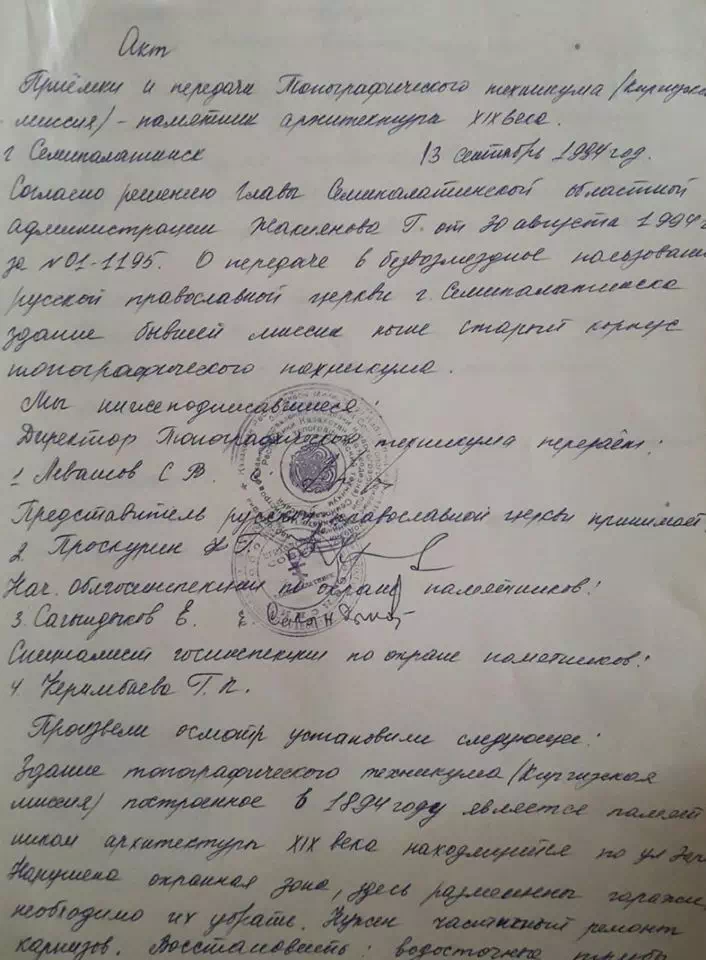 Акт
Приёмки и передачи Топографического техникума /Киргизская
миссия/ - памятник архитектура XIX века.
г Семипалатинск 13 сентябрь 1994 год.
Согласно решению Главы Семипалатинской областной
администрации Жакиянова Г. от 30 августа 1994 г
за № 01-1195. О передаче в безвозмездное пользование
русской православной церкви г. Семипалатинска
здание бывшей миссии ныне старый корпус
топографического техникума.
Мы нижеподписавшиеся:
Директор Топографического техникума передаём:
1 Левашов С В.
Представитель русской православной церкви принимает
2. Проскурин
Нач. облгосинспекции по охране памятников:
3. Сагындыков Е.
Специалист госинспекции по охране памятников:
4. Керимбаева Г. К.
Произвели осмотр установили следующее:
Здание топографического техникума /Киргизская
миссия/ построенное в 1894 году является памят
ником архитектуры XIX века находящийся по ул
Нарушена охранная зона, здесь размещены гаражи,
необходимо их убрать. Нужен частичный ремонт
карнизов. Восстановить: водосточные трубы